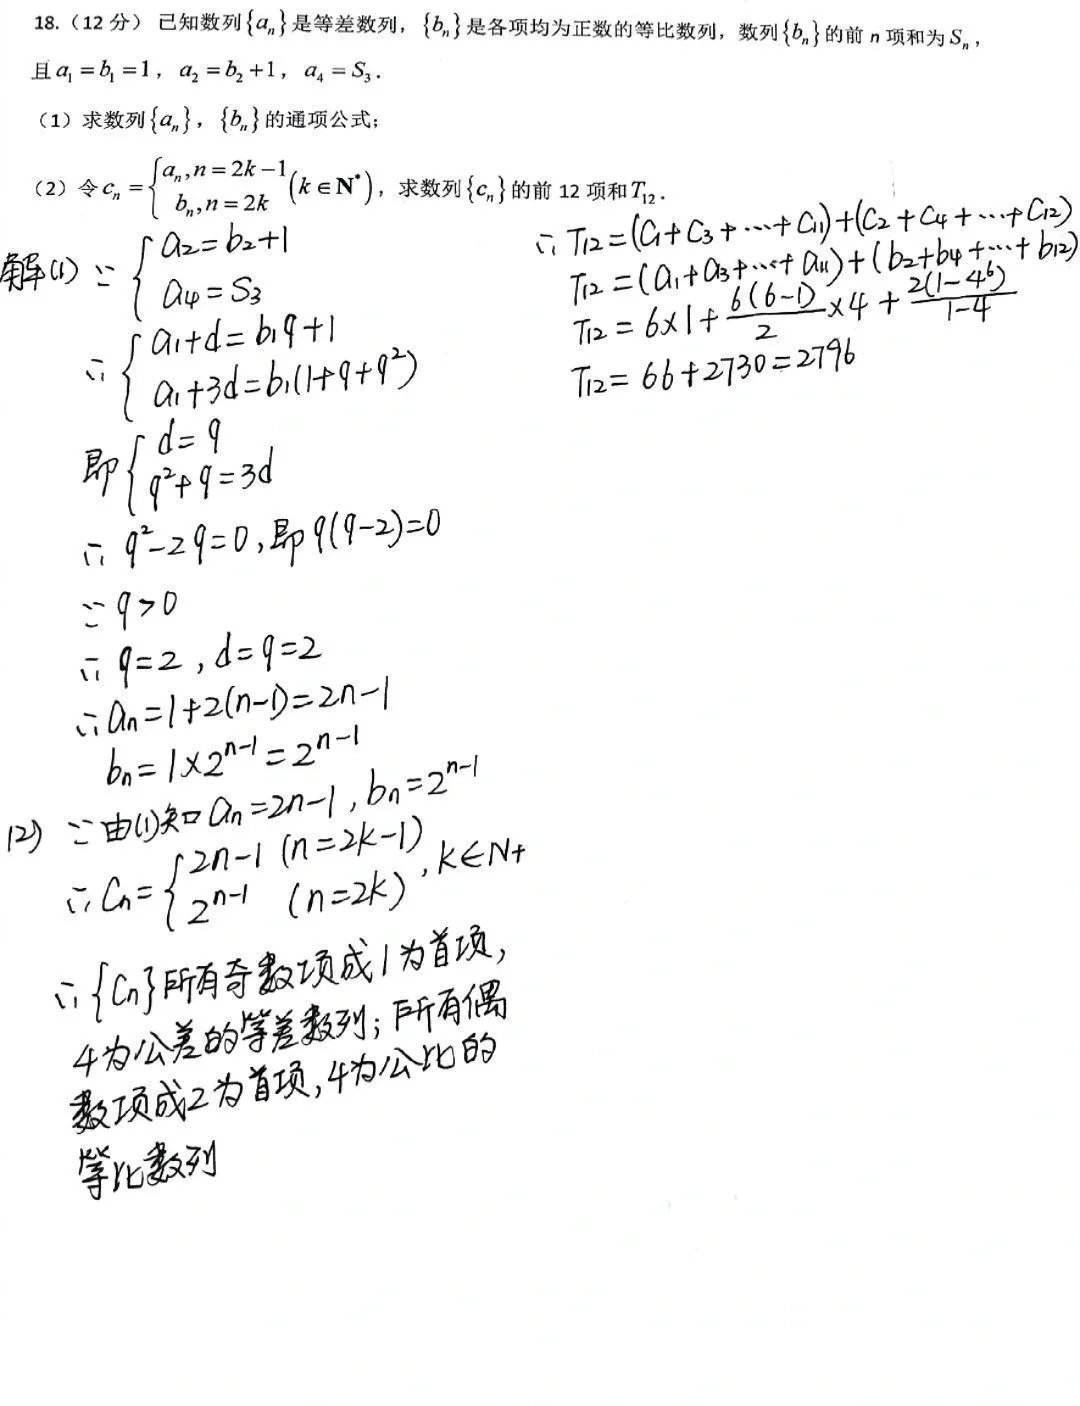 18.（12 分） 已知数列{aₙ}是等差数列，{bₙ}是各项均为正数的等比数列，数列{bₙ}的前 n 项和为 Sₙ，
且 a₁ = b₁ = 1，a₂ = b₂ + 1，a₄ = S₃．
（1）求数列{aₙ}，{bₙ}的通项公式；
（2）令 cₙ = { aₙ, n = 2k − 1
bₙ, n = 2k (k ∈ N*)，求数列{cₙ}的前 12 项和 T₁₂．
解(1) ∵ { a₂ = b₂+1
a₄ = S₃
∴ { a₁+d = b₁q+1
a₁+3d = b₁(1+q+q²)
即 { d = q
q²+q = 3d
∴ q²−2q=0, 即 q(q−2)=0
∵ q>0
∴ q=2, d=q=2
∴ aₙ=1+2(n−1)=2n−1
bₙ=1×2ⁿ⁻¹=2ⁿ⁻¹
(2) ∵ 由(1)知 aₙ=2n−1, bₙ=2ⁿ⁻¹
∴ Cₙ= { 2n−1 (n=2k−1)
2ⁿ⁻¹ (n=2k) , k∈N+
∴ {Cₙ}所有奇数项成1为首项,
4为公差的等差数列; 所有偶
数项成2为首项, 4为公比的
等比数列
∴ T₁₂=(C₁+C₃+⋯+C₁₁)+(C₂+C₄+⋯+C₁₂)
T₁₂=(a₁+a₃+⋯+a₁₁)+(b₂+b₄+⋯+b₁₂)
T₁₂ = 6×1+ 6(6−1)/2 ×4 + 2(1−4⁶)/1−4
T₁₂= 66+2730=2796